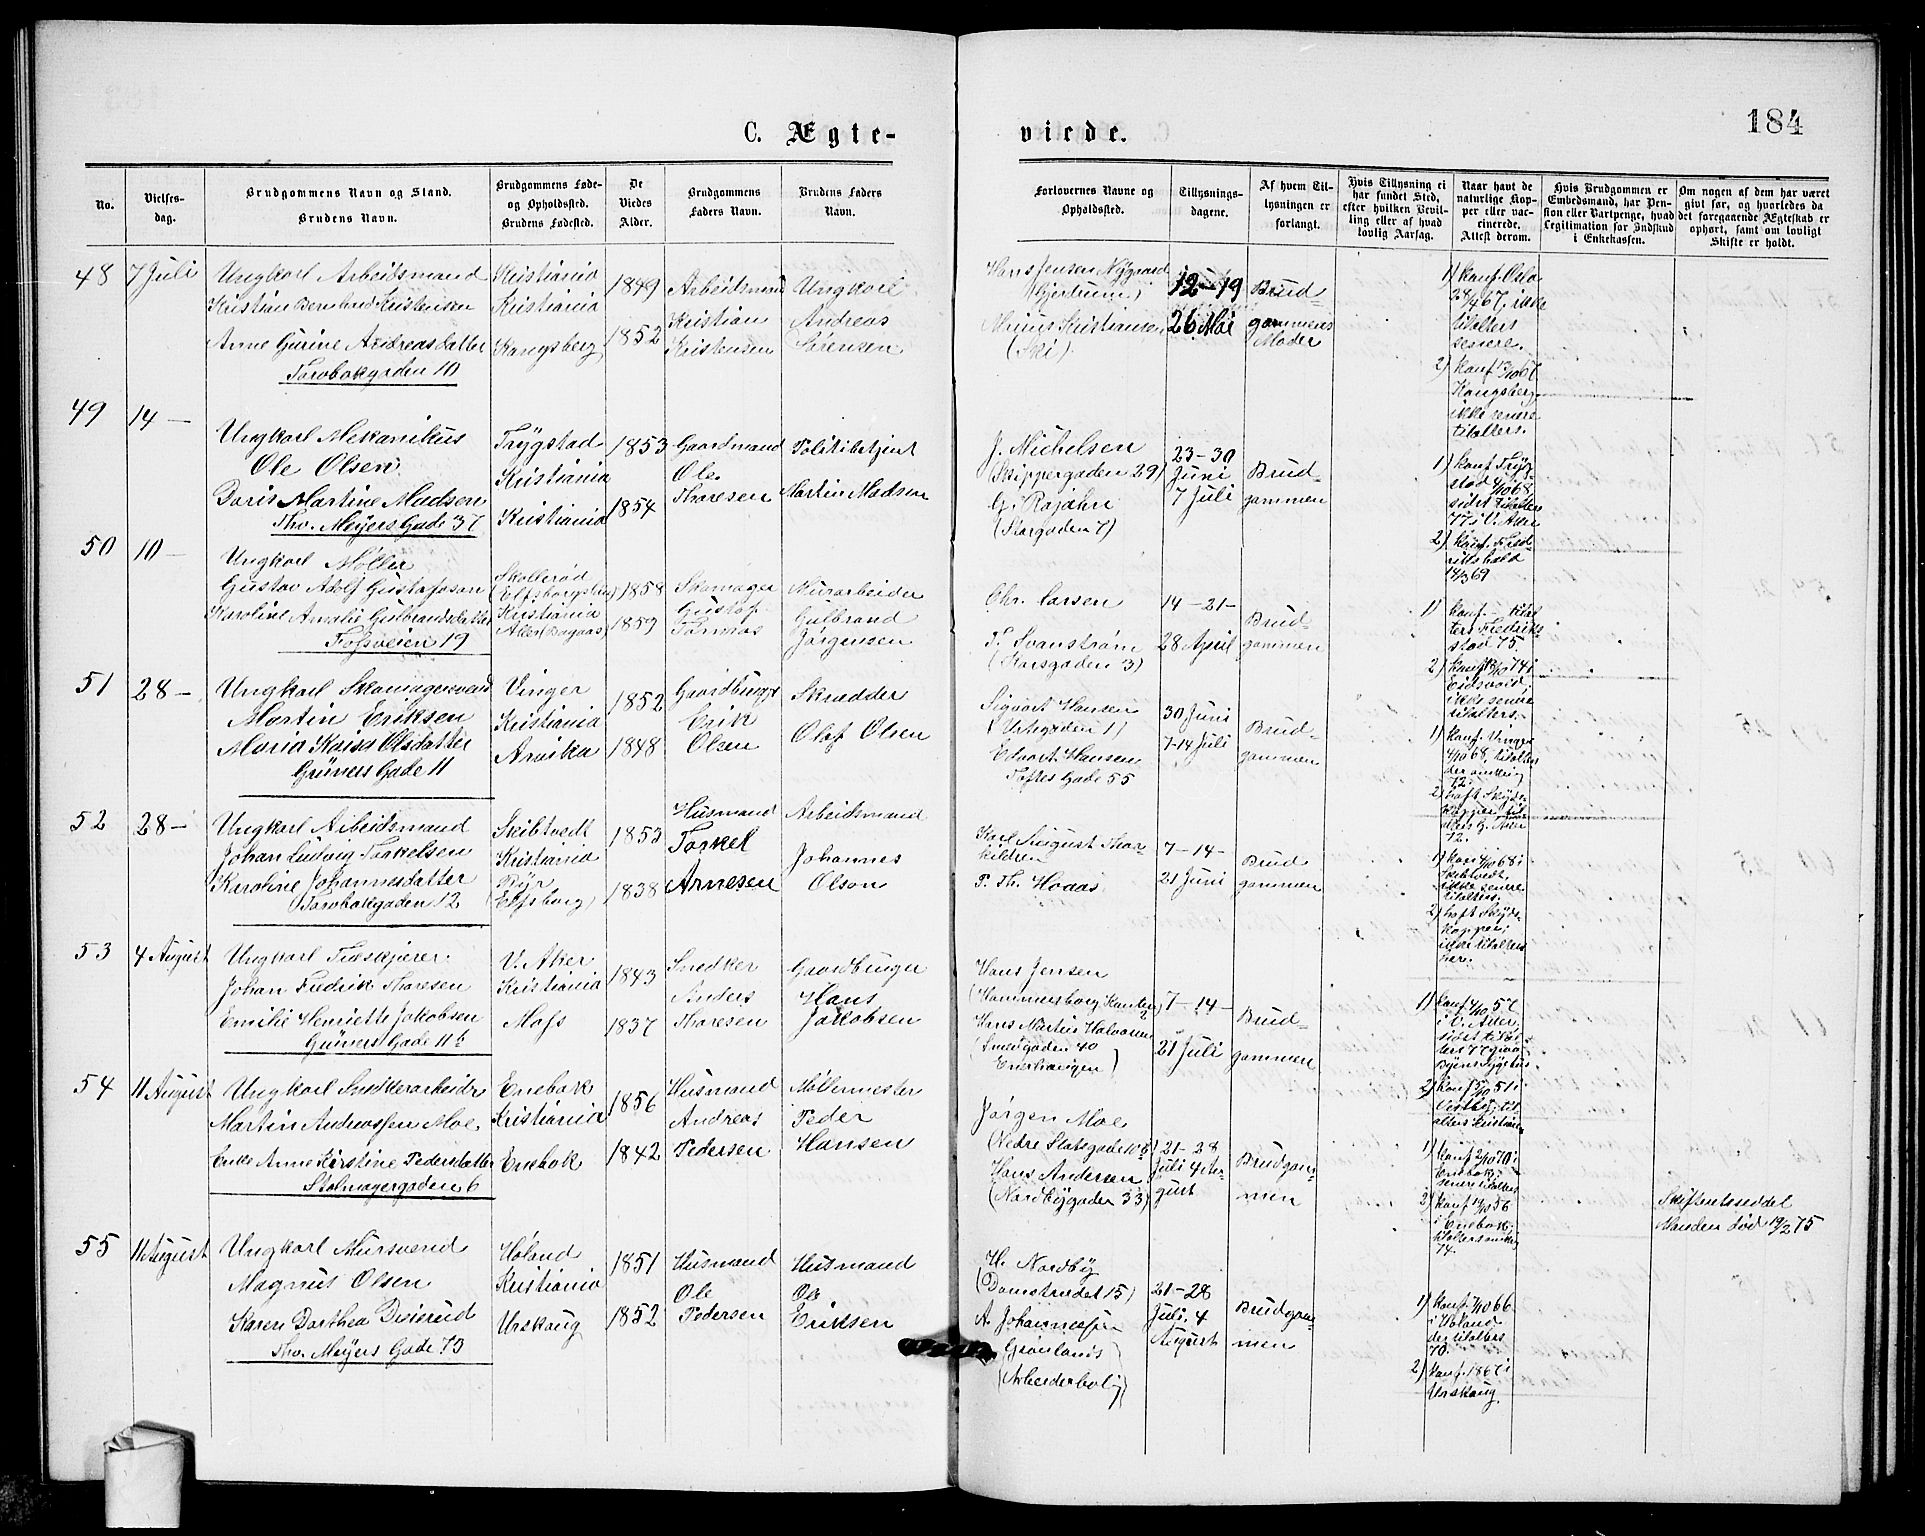 C. Ægte-
viede.
184
No.
Vielses-
dag.
Brudgommens Navn og Stand.
Brudens Navn.
Brudgommens Føde-
og Opholdssted.
Brudens Fødested.
De
Viedes
Alder.
Brudgommens
Faders Navn.
Brudens Faders
Navn.
Forlovernes Navne og
Opholdssted.
Tillysnings-
dagene.
Af hvem Til-
lysningen er
forlangt.
Hvis Tillysning ei
har fundet Sted,
efter hvilken Bevil-
ling eller af hvad
lovlig Aarsag.
Naar havt de
naturlige Kop-
per eller vac-
cinerede.
Attest derom.
Hvis Brudgommen er
Embedsmand, har Pen-
sion eller Vartpenge, hvad
Legitimation for Indskud
i Enkekassen.
Om nogen af dem har været
gift før, og hvorledes da
det foregaaende Ægteskab er
ophørt, samt om lovligt
Skifte er holdt.
48
7 Juli
Ungkarl Arbeidsmand
Kristian Bernhard Kristensen
Anne Gurine Andreasdatter
Torvbakgaden 10
Kristiania
Kristiania
Kongsberg
1849
1852
Arbeidsmand
Kristian
Kristensen
Ungkarl
Andreas
Sørensen
Hans Jensen Nygaard
(Gjerdrum)
Kristiansen
(Ski)
12-19
26 Mai
Brud-
gommens
Moder
1) konf. Oslo
28/4 67, ikke
titalters
senere.
2) konf. 13/10 67
Kongsberg
ikke senere
titalters.
49
14 —
Ungkarl Mekanikus
Ole Olsen
Doris Martine Madsen
Thv. Meyers Gade 37
Trygstad
Kristiania
Kristiania
1853
1854
Gaardmand
Ole
Thoresen
Politibetjent
Martin Madsen
J. Michelsen
(Skippergaden 29)
G. Rojahn
(Storgaden 7)
23-30
Juni
7 Juli
Brud-
gommen
1) konf. Tryg-
stad 4/10 68
sidst titalters
77 i V. Aker
2) konf. Fred-
rikshald
14/3 69
50
10 —
Ungkarl Møller
Gustav Adolf Gustafsson
Karoline Amalie Gulbrandsdatter
Fossveien 19
Skollerød
(Elfsborgslen)
Kristiania
Aker
1858
1859
Skomager
Gustaf
Murarbeider
Gulbrand
Jørgensen
Chr. Larsen
T. Svanstrøm
(Korsgaden 3)
14-21-
28 April
Brud-
gommen
1) konf. -
ters Fredrik-
stad 75.
2) 74 i
Eidsvold.
ikke senere
titalters.
51
28 —
Ungkarl Skomagersvend
Martin Eriksen
Maria Kaisa Olsdatter
Grüners Gade 11
Vinger
Kristiania
Arvika
1852
1848
Gaardbruger
Erik
Olsen
Skrædder
Olof Olsen
Sigvart Hansen
(Urtegaden 1)
Edvart Hansen
Toftes Gade 55
30 Juni
7-14 Juli
Brud-
gommen
1) konf. Vinger
4/10 68, titalters
der omkring
72.
2) haft Skyds
Kopper
alters G. Aker
72.
52
28 —
Ungkarl Arbeidsmand
Johan Ludvig Torkelsen
Karoline Johannesdatter
Torvbakgaden 12
Skibtvedt
Kristiania
Byr
(Elfsborg)
1853
1838
Husmand
Torkel
Arnesen
Arbeidsmand
Johannes
Olson
Karl August Thor-
kildsen
P. Th. Hoaas
7-14-
21 Juni
Brud
gommen
1) konf. 4/10 68 i
Skibtvedt,
ikke senere
titalters.
2) haft Skyds-
kopper,
ikke titalters
here.
53
4 August
Ungkarl Tieskjærer
Johan Fredrik Thoresen
Emilie Henriette Jakobsen
Grüners Gade 11 b
V. Aker
Kristiania
Moss
1843
1837
Snedker
Anders
Thoresen
Gaardbruger
Hans
Jakobsen
Hans Jensen
(Hammersborg
Hans Martin Halvorsen
(Smedgaden 40
Enerhaugen)
7-14-
21 Juli
Brud-
gommen
1) konf. 4/10 57
i V. Aker,
sidst titalt-
ters 77 paa
Byens Sygehus.
2) konf. 5/10 51 i
Vestby, tit-
alters Kristian-
54
11 August
Ungkarl Snedkerarbeider
Martin Andreassen Moe
Enke Anne Kirstine Pedersdatter
Stolmagergaden 6
Enebak
Kristiania
Enebak
1856
1842
Husmand
Andreas
Pedersen
Møllermester
Peder
Hansen
Jørgen Moe
(Nedre Slotsgade 10 b)
Hans Andersen
(Nordbygaden 33)
21-28
Juli 4 Au-
gust
Brudgom-
men
1) konf. 2/10 70 i
Enebak,
senere titalters
2) konf. 19/10 56
i Enebak,
titalters omkring
74.
Skifteretsseddel
Manden død 19/2 75
55
11 August
Ungkarl Mursvend
Magnus Olsen
Karen Dorthea Diserud
Thv. Meyers Gade 73
Høland
Kristiania
Urskoug
1851
1852
Husmand
Ole
Pedersen
Husmand
Ole
Eriksen
H. Nordby
(Damstrædet 15)
A. Johannessen
Grønlands
(Arbeiderbolig)
21-28
Juli, 4
August
Brudgom-
men
1) konf. 7/10 66
i Høland
der titalters
70.
2) konf. 1867 i
Urskoug